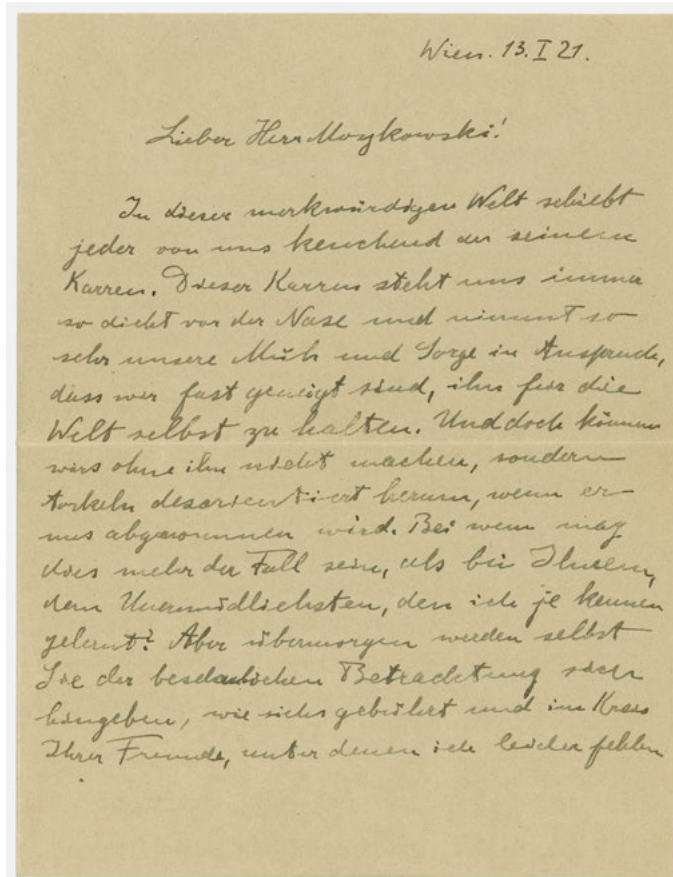 Wien. 13. I 21.
Lieber Herr Moszkowski!
In dieser merkwürdigen Welt schiebt
jeder von uns keuchend an seinem
Karren. Dieser Karren steht uns immer
so dicht vor der Nase und nimmt so
sehr unsere Müh und Sorge in Anspruch,
dass wir fast geneigt sind, ihn für die
Welt selbst zu halten. Und doch können
wirs ohne ihn nicht machen, sondern
torkeln desorientiert herum, wenn er
uns abgenommen wird. Bei wem mag
dies mehr der Fall sein, als bei Ihnen,
dem Unermüdlichsten, den ich je kennen
gelernt? Aber übermorgen werden selbst
Sie der beschaulichen Betrachtung sich
hingeben, wie sichs gebührt und im Kreis
Ihrer Freunde, unter denen ich leider fehlen